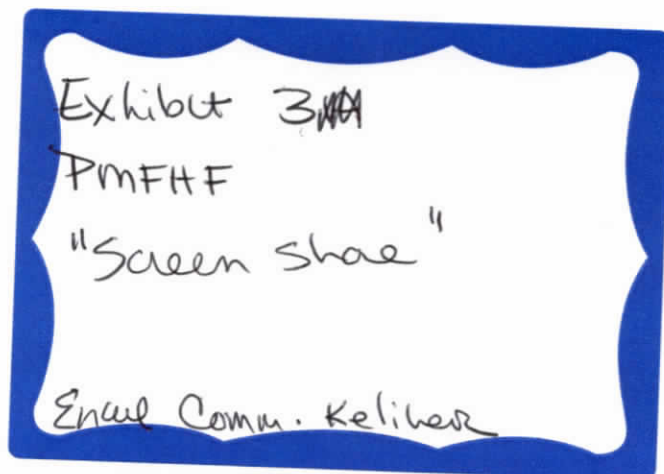 Exhibit 3
PMFHF
"Screen Share"
Email Comm. Keliher